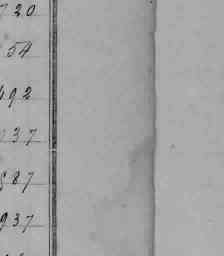 720
54
492
037
587
937